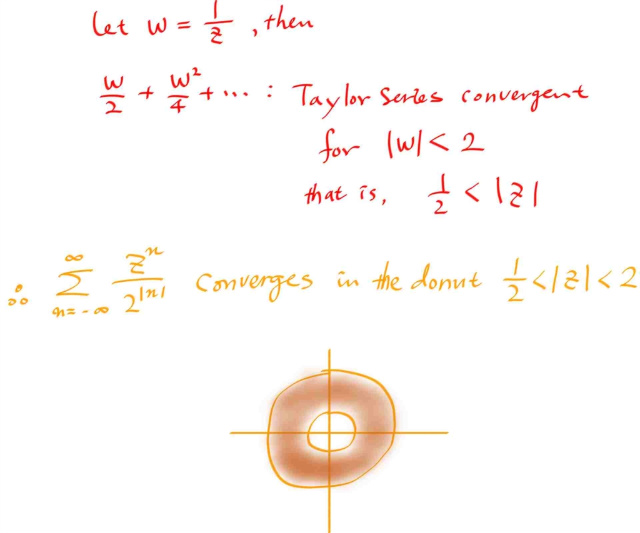 let w = 1/z , then
w/2 + w²/4 + ... : Taylor Series convergent
for |w| < 2
that is, 1/2 < |z|
∴ ∑_{n=-∞}^{∞} z^n/2^{|n|} converges in the donut 1/2 < |z| < 2